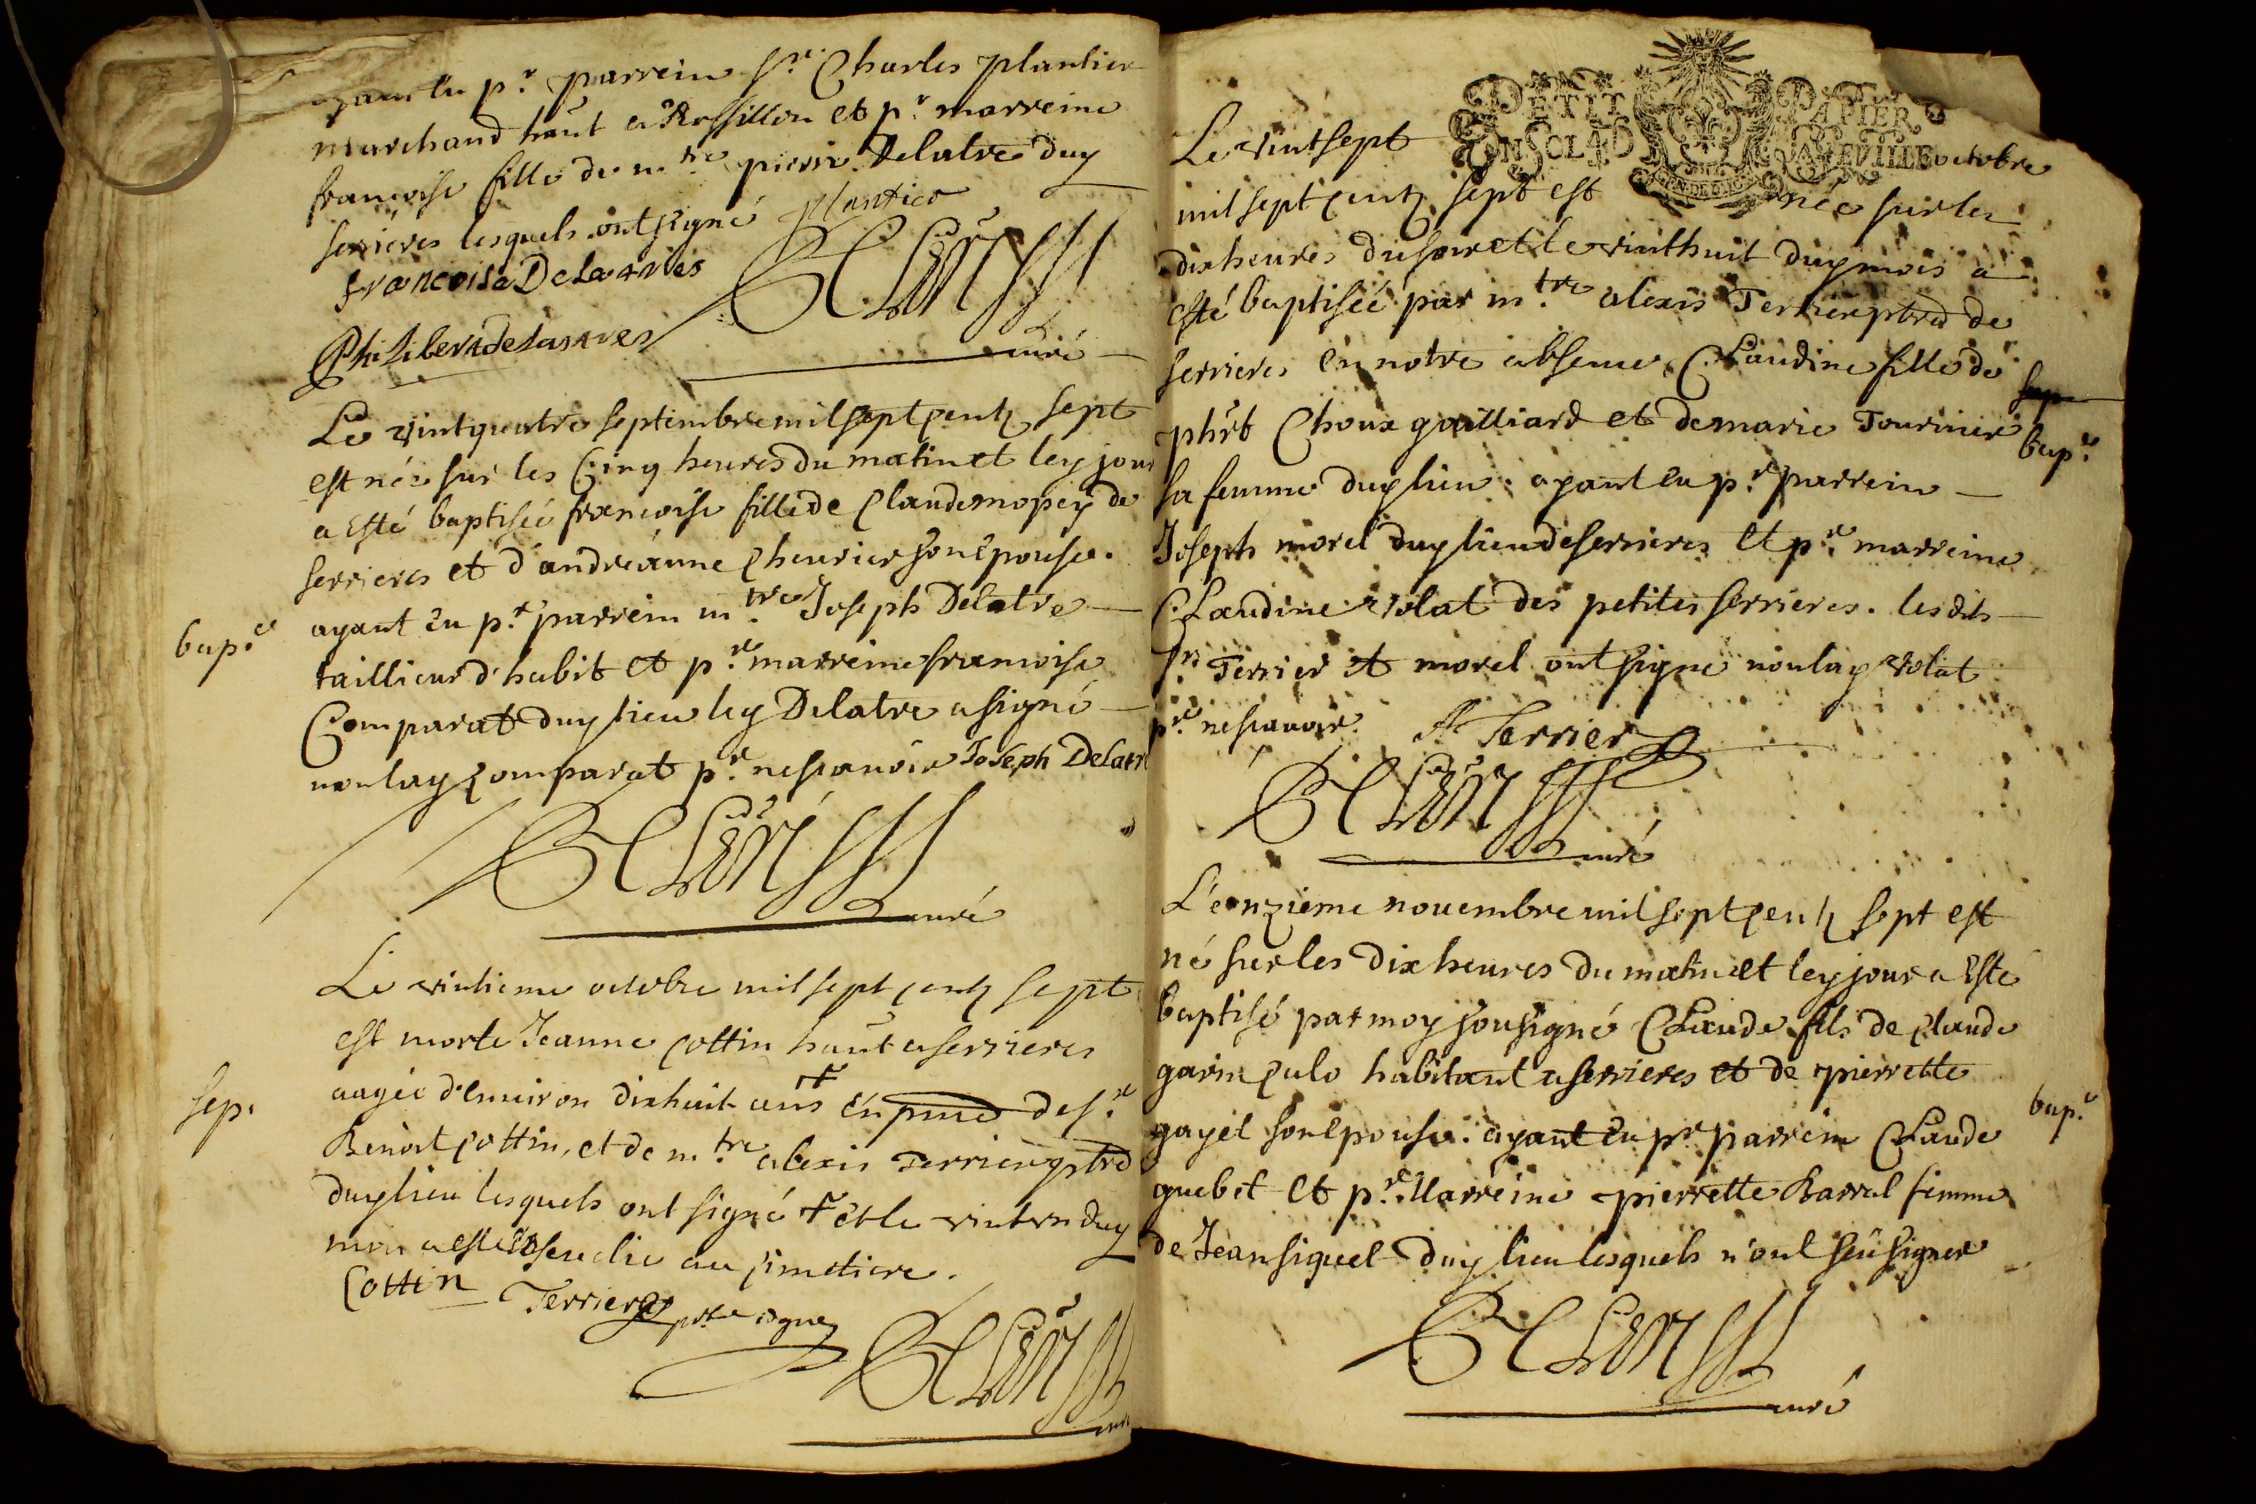 ayant eu p.r parrein s.r Charles plantier
marchand ha͞nt a Rossillon et p.r marreine
francoise fille de m.tre pierre Delatre duy
serrieres lesquels ont signé plantier
francoise DeLatres
Philibert delastres
curé
Le vintquatre septembre mil sept centz sept
est née sur les Cinq heures du matin et ley jour
a Esté baptiseé francoise fille de Claude mopey de
serrieres et d'andréanne cheurier son Epouse.
bap.e
ayant eu p.r parrein m.tre Joseph Delatre
taillieur d'habit et p.re marreine francoise
Comparat duy lieu ley Delatre a signé
non lay Comparat p.r ne scavoir Joseph Delatr
curé
Le vintieme octobre mil sept centz sept
est morte Jeanne cottin ha͞nt a serrieres
sep.
aagée d'environ dixhuit ans en pnce de s.r
Benoit cottin, et de m.tre alexis Terrier ptre
duy lieu lesquels ont signé et le vint un duy
mois a esté ensevelie au cimetiere.
Cottin Terrier ptre
curé
PETIT PAPIER
Le vint sept octobre
mil sept centz sept est née sur les
dix heures du soir et le vint huit duy mois a
esté baptiseé par m.tre alexis Terrier ptre de
serrieres en notre absence Claudine fille de
sep
phrt Choux gailliard et de marie Tournier
bap.e
sa femme duy lieu. ayant eu p.r parrein
Joseph morel duy lieu de serrieres et p.re marreine
Claudine volat des petites serrieres. lesdits
srs Terrier et morel ont signé non lay volat
p.r ne scavoir. A Terrier
curé
L'eonzieme novembre mil sept centz sept est
né sur les dix heures du matin et ley jour a Esté
baptisé par moy sousigné Claude fils de Claude
garin culo habitant a serrieres et de pierrette
bap.e
gayet son Epouse. ayant eu pr parrein Claude
guebet et p.re Marreine pierrette Barral femme
de Jean siquet duy lieu lesquels n'ont sceu signer
curé